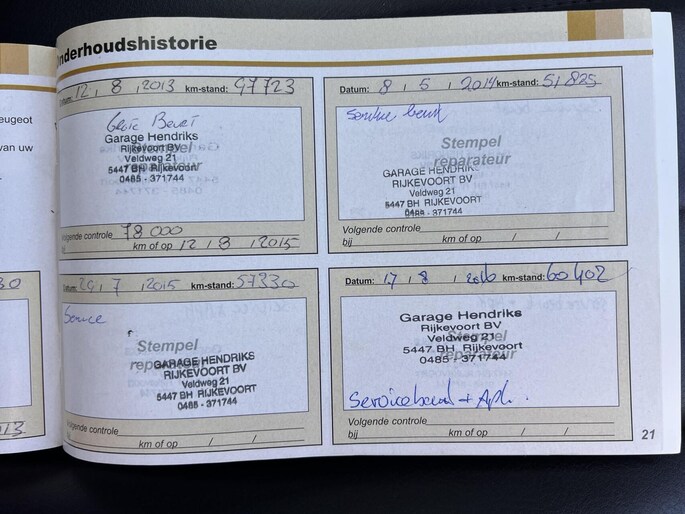 Onderhoudshistorie
eugeot
van uw
Datum: 12 / 8 / 2013 km-stand: 47723
Grote Beurt
Garage Hendriks
Rijkevoort BV
Veldweg 21
5447 BH Rijkevoort
0485 - 371744
Stempel
reparateur
Volgende controle 78000
bij km of op 12 / 8 / 2015
Datum: 8 / 5 / 2014 km-stand: 51825
Service beurt
Stempel
reparateur
GARAGE HENDRIKS
RIJKEVOORT BV
Veldweg 21
5447 BH RIJKEVOORT
0485 - 371744
Volgende controle
bij km of op / /
Datum: / 7 / 2015 km-stand: 57330
Service
Stempel
reparateur
GARAGE HENDRIKS
RIJKEVOORT BV
Veldweg 21
5447 BH RIJKEVOORT
0485 - 371744
Volgende controle
bij km of op / /
Datum: 17 / 8 / 2016 km-stand: 60402
Garage Hendriks
Rijkevoort BV
Veldweg 21
5447 BH Rijkevoort
0485 - 371744
Stempel
reparateur
Servicebeurt + Apk.
Volgende controle
bij km of op / /
21